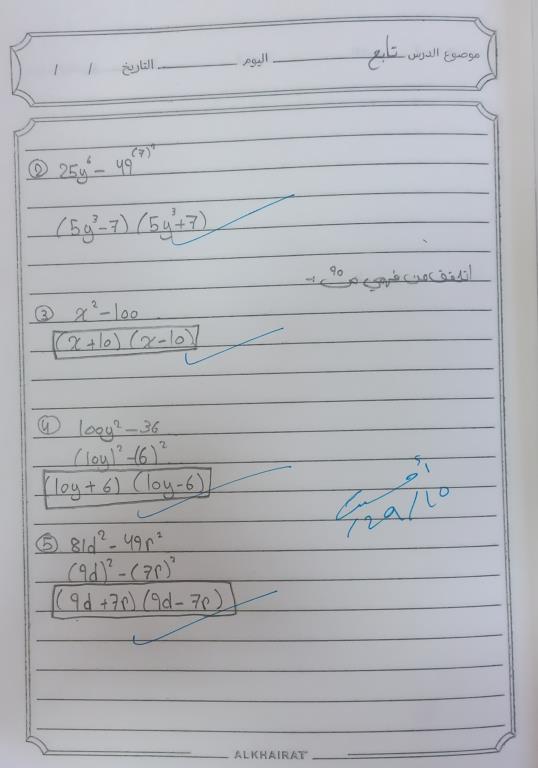 موضوع الدرس تابع اليوم التاريخ / /
② 25y⁶ - 49⁽⁷⁾
(5y³-7) (5y³+7)
أتحقق من فهمي ص ٩٥ :-
③ x² - 100
(x+10) (x-10)
④ 100y² - 36
(10y)² - (6)²
(10y + 6) (10y - 6)
أحسنت
⑤ 81d² - 49r²
(9d)² - (7r)²
(9d + 7r) (9d - 7r)
ALKHAIRAT